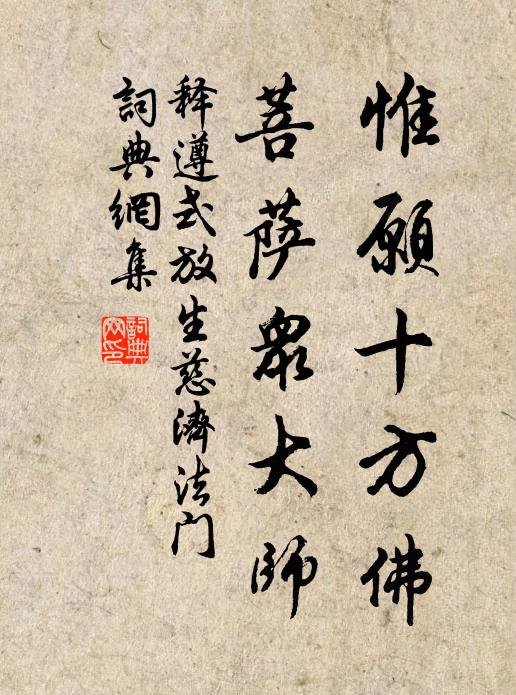 惟願十方佛
菩薩眾大師
释遵式放生慈濟法门
詞典網集
詞典
网印